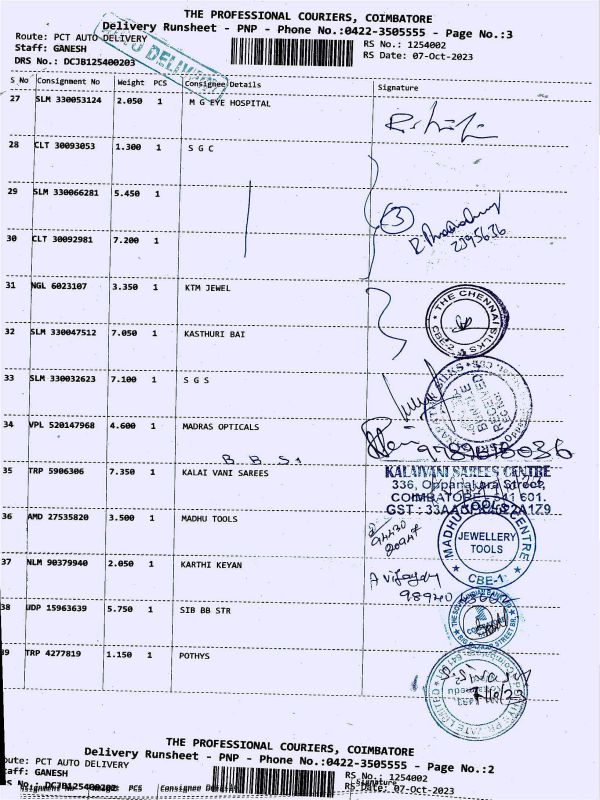 THE PROFESSIONAL COURIERS, COIMBATORE
Delivery Runsheet - PNP - Phone No.:0422-3505555 - Page No.:3
Route: PCT AUTO DELIVERY
Staff: GANESH
DRS No.: DCJB125400203
RS No.: 1254002
RS Date: 07-Oct-2023
AUTO DELIVERY
S No Consignment No Weight PCS Consignee Details Signature
27 SLM 330053124 2.050 1 M G EYE HOSPITAL
28 CLT 30093053 1.300 1 S G C
29 SLM 330066281 5.450 1
3
30 CLT 30092981 7.200 1
31 NGL 6023107 3.350 1 KTM JEWEL
THE CHENNAI SILKS
CBE-2
32 SLM 330047512 7.050 1 KASTHURI BAI
33 SLM 330032623 7.100 1 S G S
34 VPL 520147968 4.600 1 MADRAS OPTICALS
B B S
35 TRP 5906306 7.350 1 KALAI VANI SAREES
KALAIVANI SAREES CENTRE
336, Oppanakara Street,
COIMBATORE - 641 001.
36 AMD 27535820 3.500 1 MADHU TOOLS
MADHU TOOLS CENTRE
JEWELLERY
TOOLS
CBE-1
37 NLM 90379940 2.050 1 KARTHI KEYAN
38 UDP 15963639 5.750 1 SIB BB STR
39 TRP 4277819 1.150 1 POTHYS
THE PROFESSIONAL COURIERS, COIMBATORE
Delivery Runsheet - PNP - Phone No.:0422-3505555 - Page No.:2
Route: PCT AUTO DELIVERY
Staff: GANESH
RS No.: 1254002
RS Date: 07-Oct-2023
DRS No.: DCJB125400202